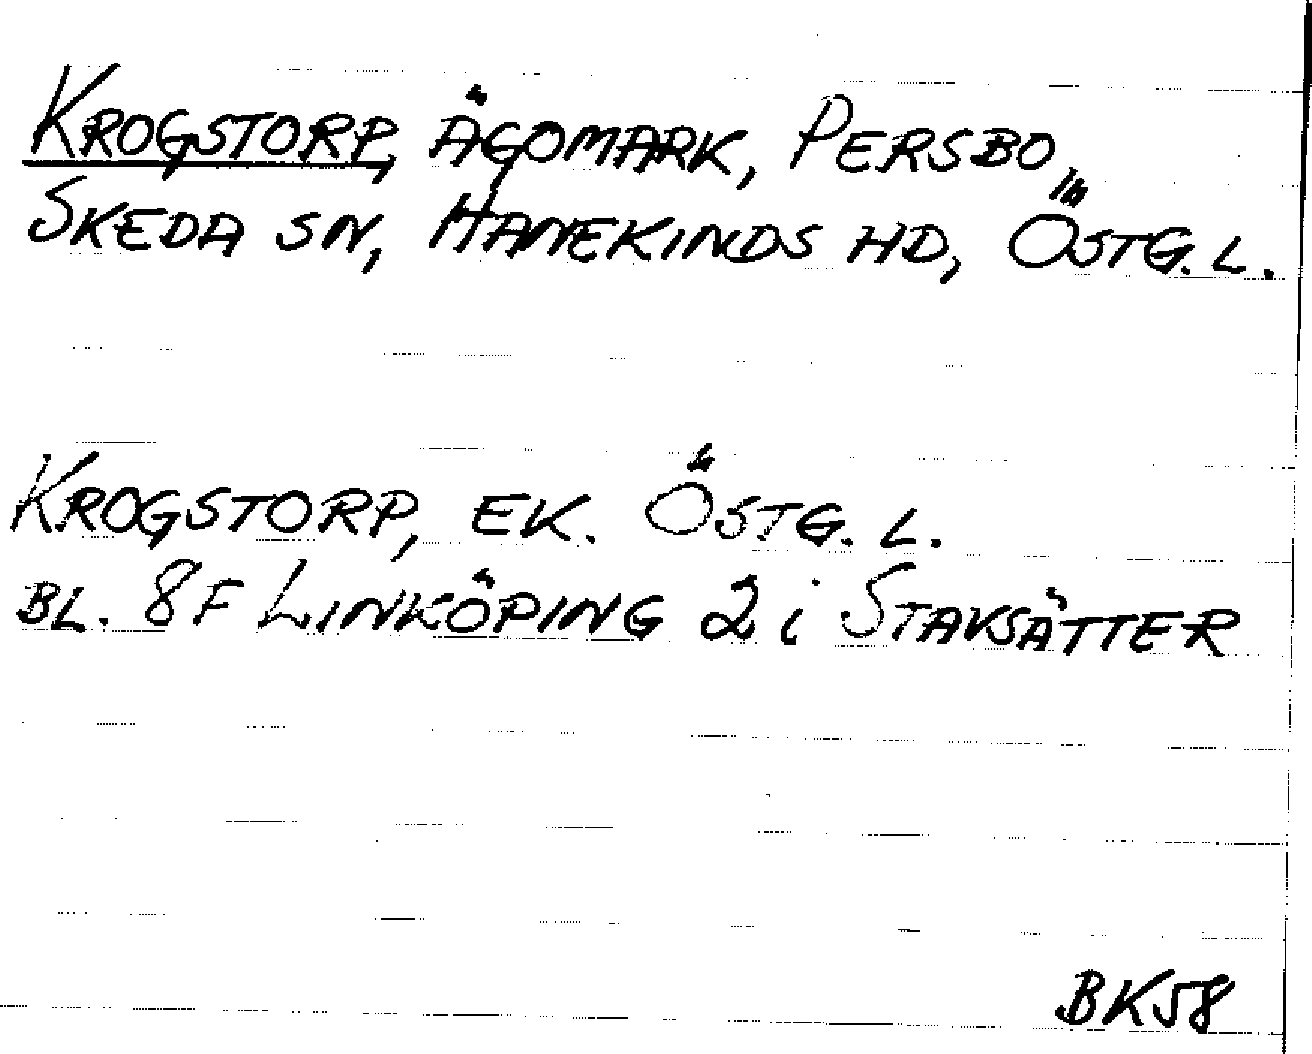 KROGSTORP, ÄGOMARK, PERSBO,
SKEDA SN, HANEKINDS HD, ÖSTG. L.
KROGSTORP, EK. ÖSTG. L.
BL. 8F LINKÖPING 2 i STAVSÄTTER
BK58